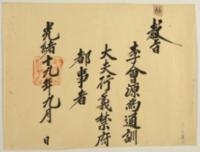 敎旨
李會源爲通訓
大夫行義禁府
都事者
光緖十九年九月　日